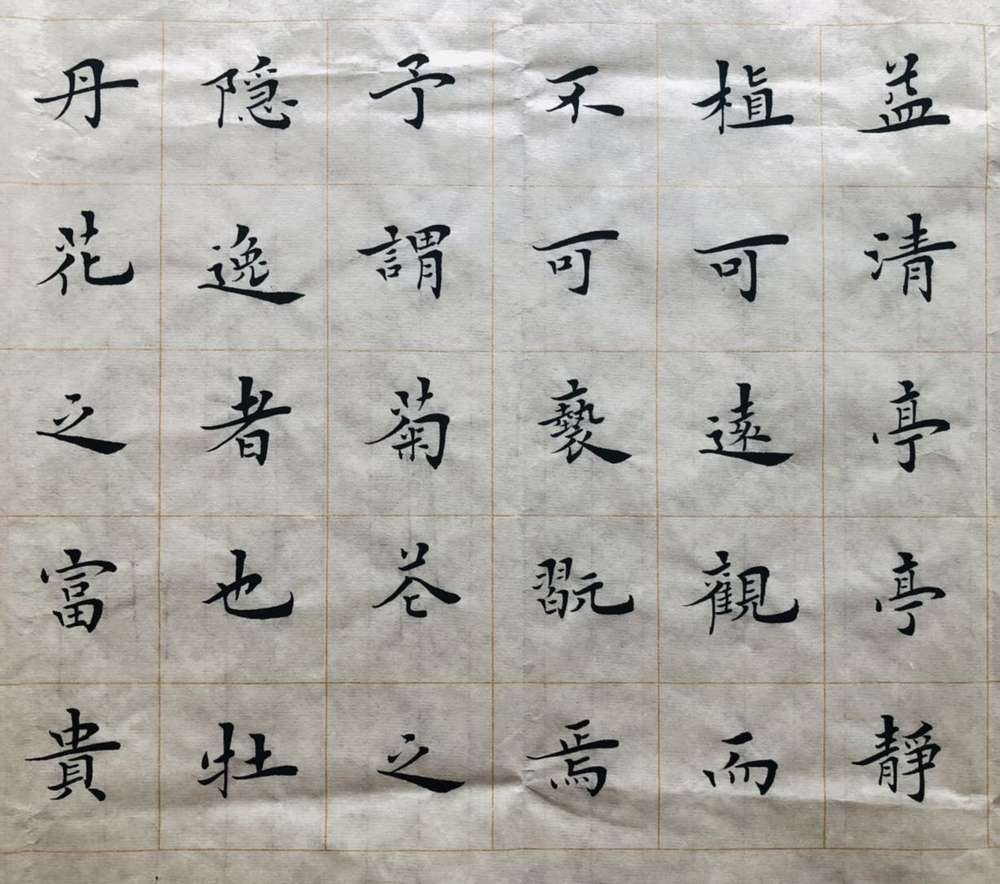 益清亭亭静
植可遠觀而
不可褻翫焉
予謂菊花之
隱逸者也牡
丹花之富貴